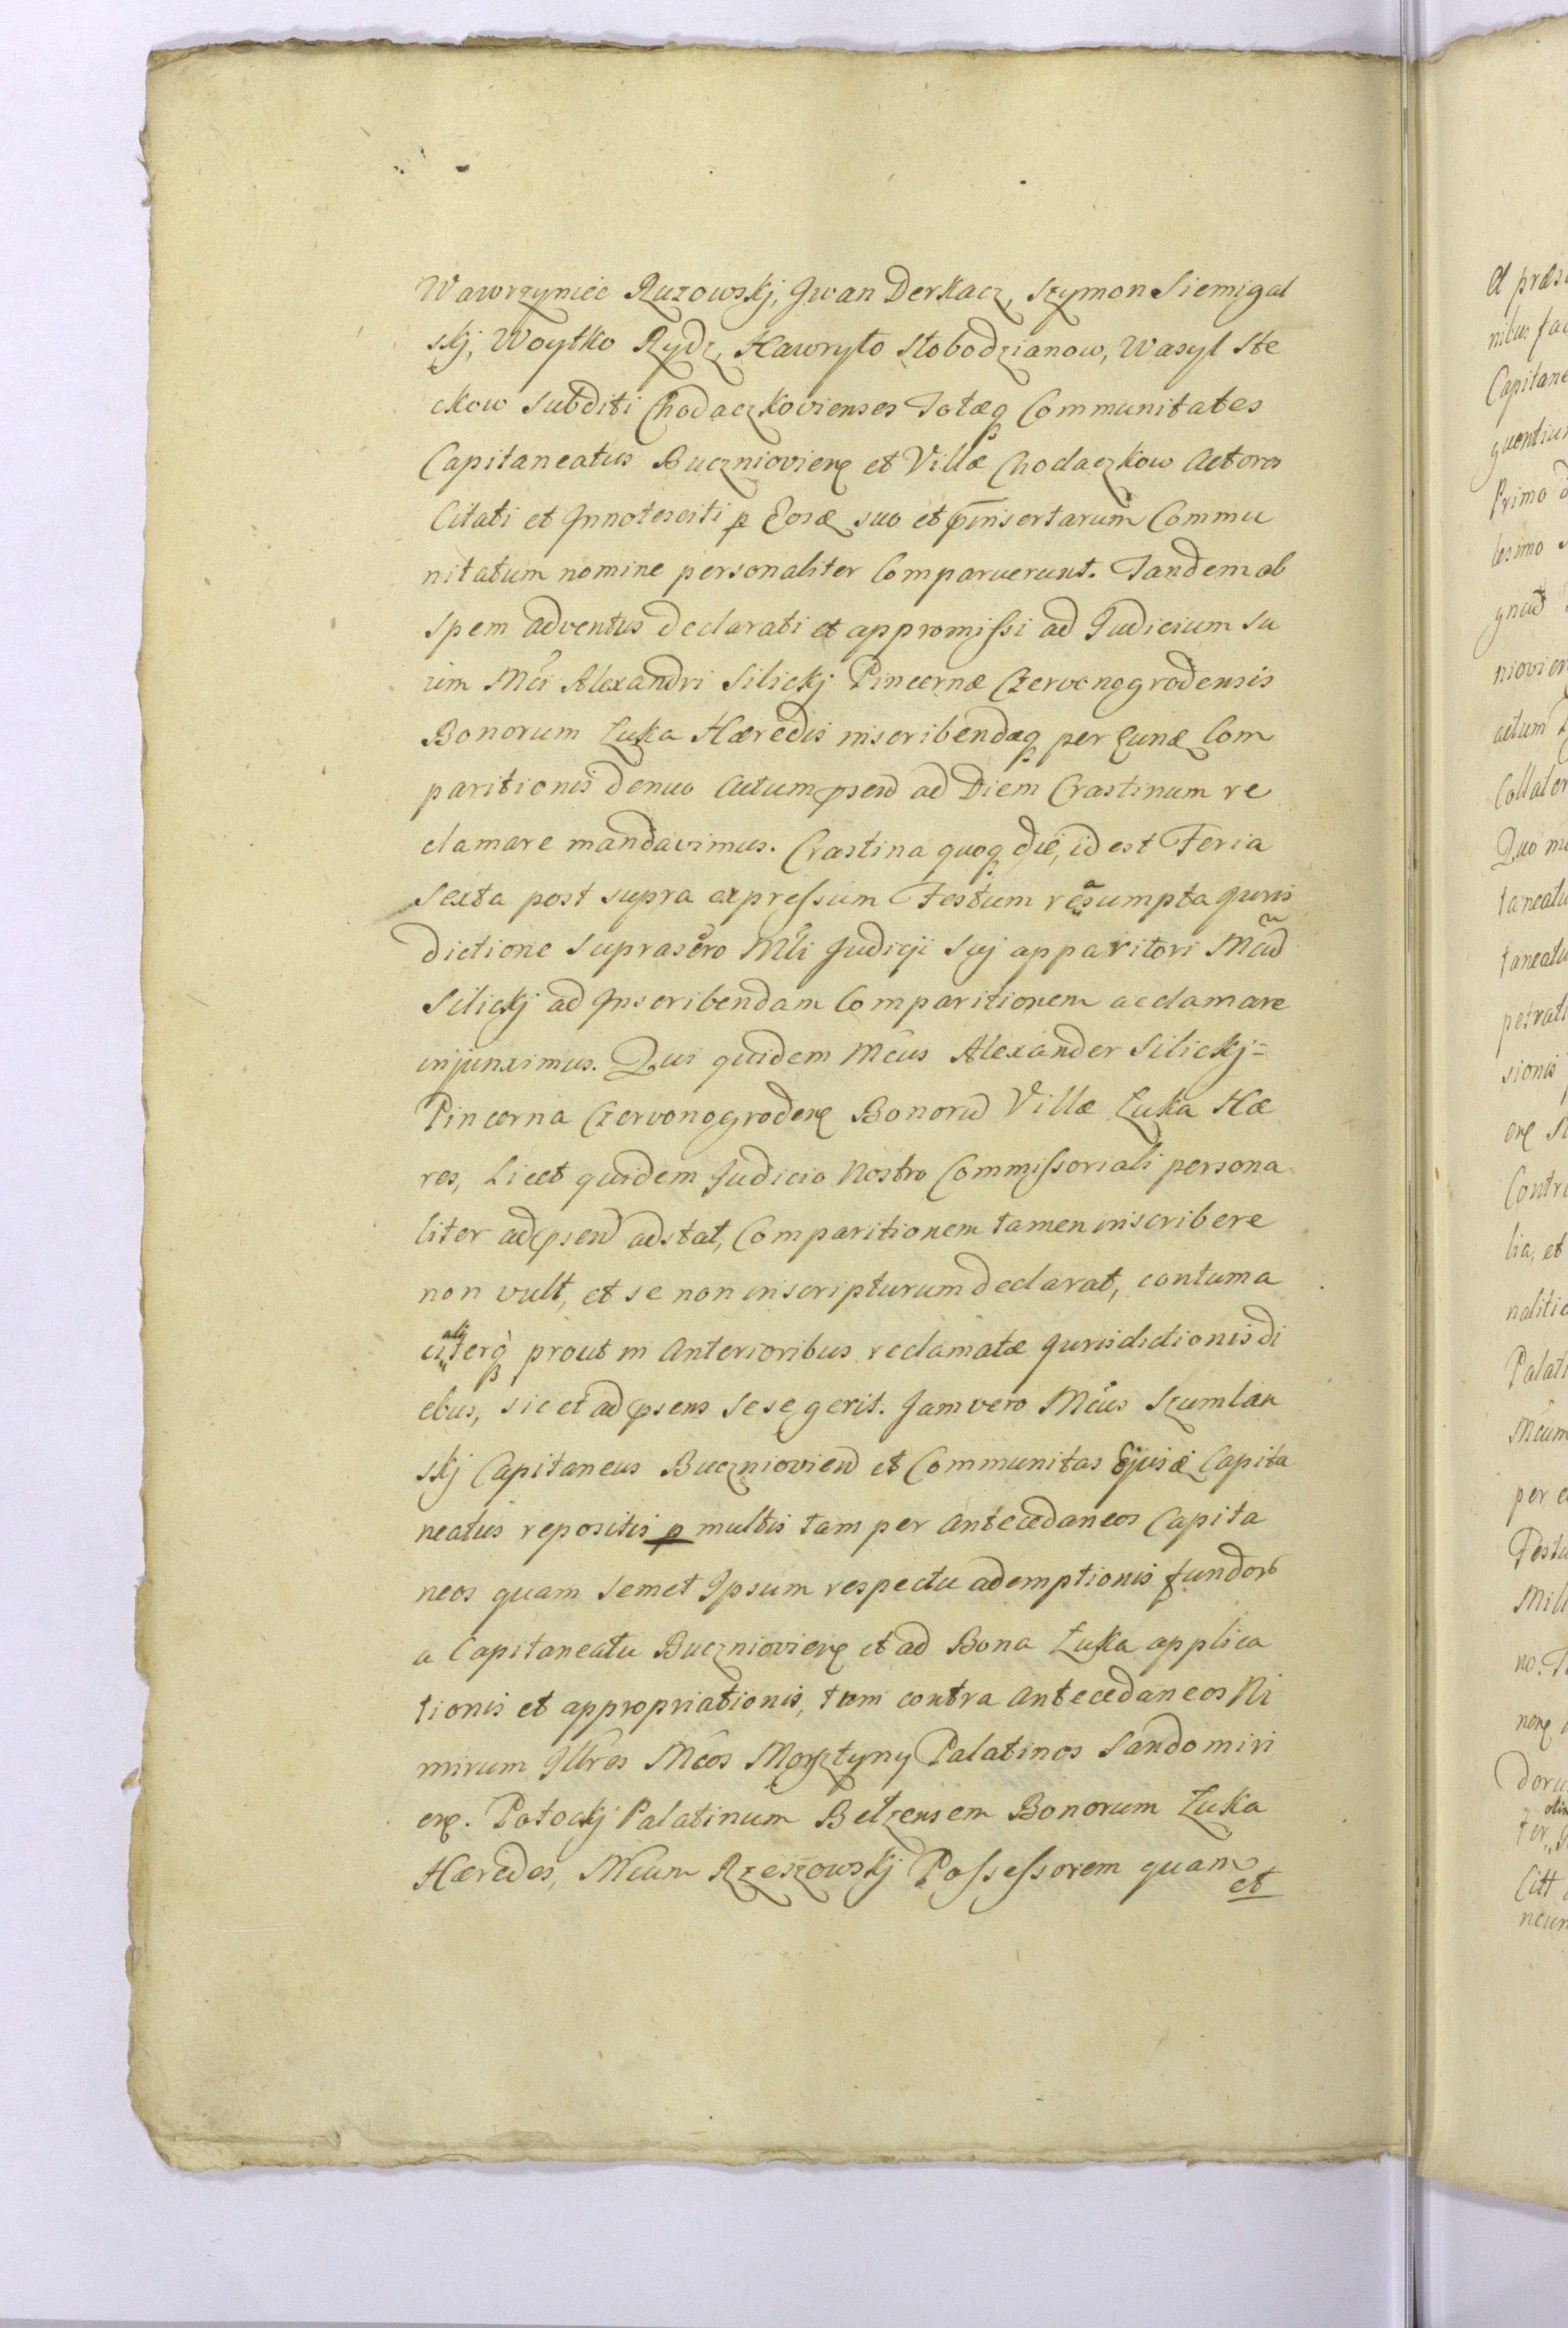 Wawrzyniec Ruzowskj, Jwan Derkacz, Szymon Siemigal
skj, Woytko Rydz, Hawryło Słobodzianow, Wasyl Ste
ckow Subditi Chodaczkovienses Totæq Communitates
Capitaneatus Buczniovien et Villæ Chodaczkow Actores
Citati et Jnnotesciti p Eosd suo et pinsertarum Commu
nitatum nomine personaliter Comparuerunt. Tandem ob
spem adventus declarati et appromissi ad Judicium su
um Mci Alexandri Silickj Pincernæ Czervonogrodensis
Bonorum Łuka Hæredis inscribendæq per Eund Com
paritionis denuo Actum psend ad Diem Crastinum re
clamare mandavimus. Crastina quoq die, id est Feria
Sexta post supra expressum Festum reasumpta Juris
dictione Suprascro Mtli Judicji Scij apparitori Mcum
Silickj ad Jnscribendam Comparitionem acclamare
injunximus. Qui quidem Mcus Alexander Silickj=
Pincerna Czervonogroden Bonorum Villæ Łuka Hæ
res, Licet quidem Judicio Nostro Commissoriali persona
liter ad psend adstat, Comparitionem tamen inscribere
non vult, et se non inscripturum declarat, contuma
cialiterq prout in Anterioribus reclamatæ Jurisdictionis di
ebus, sic et ad psens sese gerit. Jam vero Mcus Szumlan
skj Capitaneus Buczniovien et Communitas Ejusd Capita
neatus repositis p multis tam per Antecedaneos Capita
neos quam Semet Jpsum respectu ademptionis fundor
a Capitaneatu Buczniovien et ad Bona Łuka applica
tionis et appropriationis, tam contra Antecedaneos Ni
mirum Jllres Mcos Morsztyny Palatinos Sandomiri
en. Potockj Palatinum Belzensem Bonorum Łuka
Hæredes, Mcum Rzeszowskj Possessorem quam
et